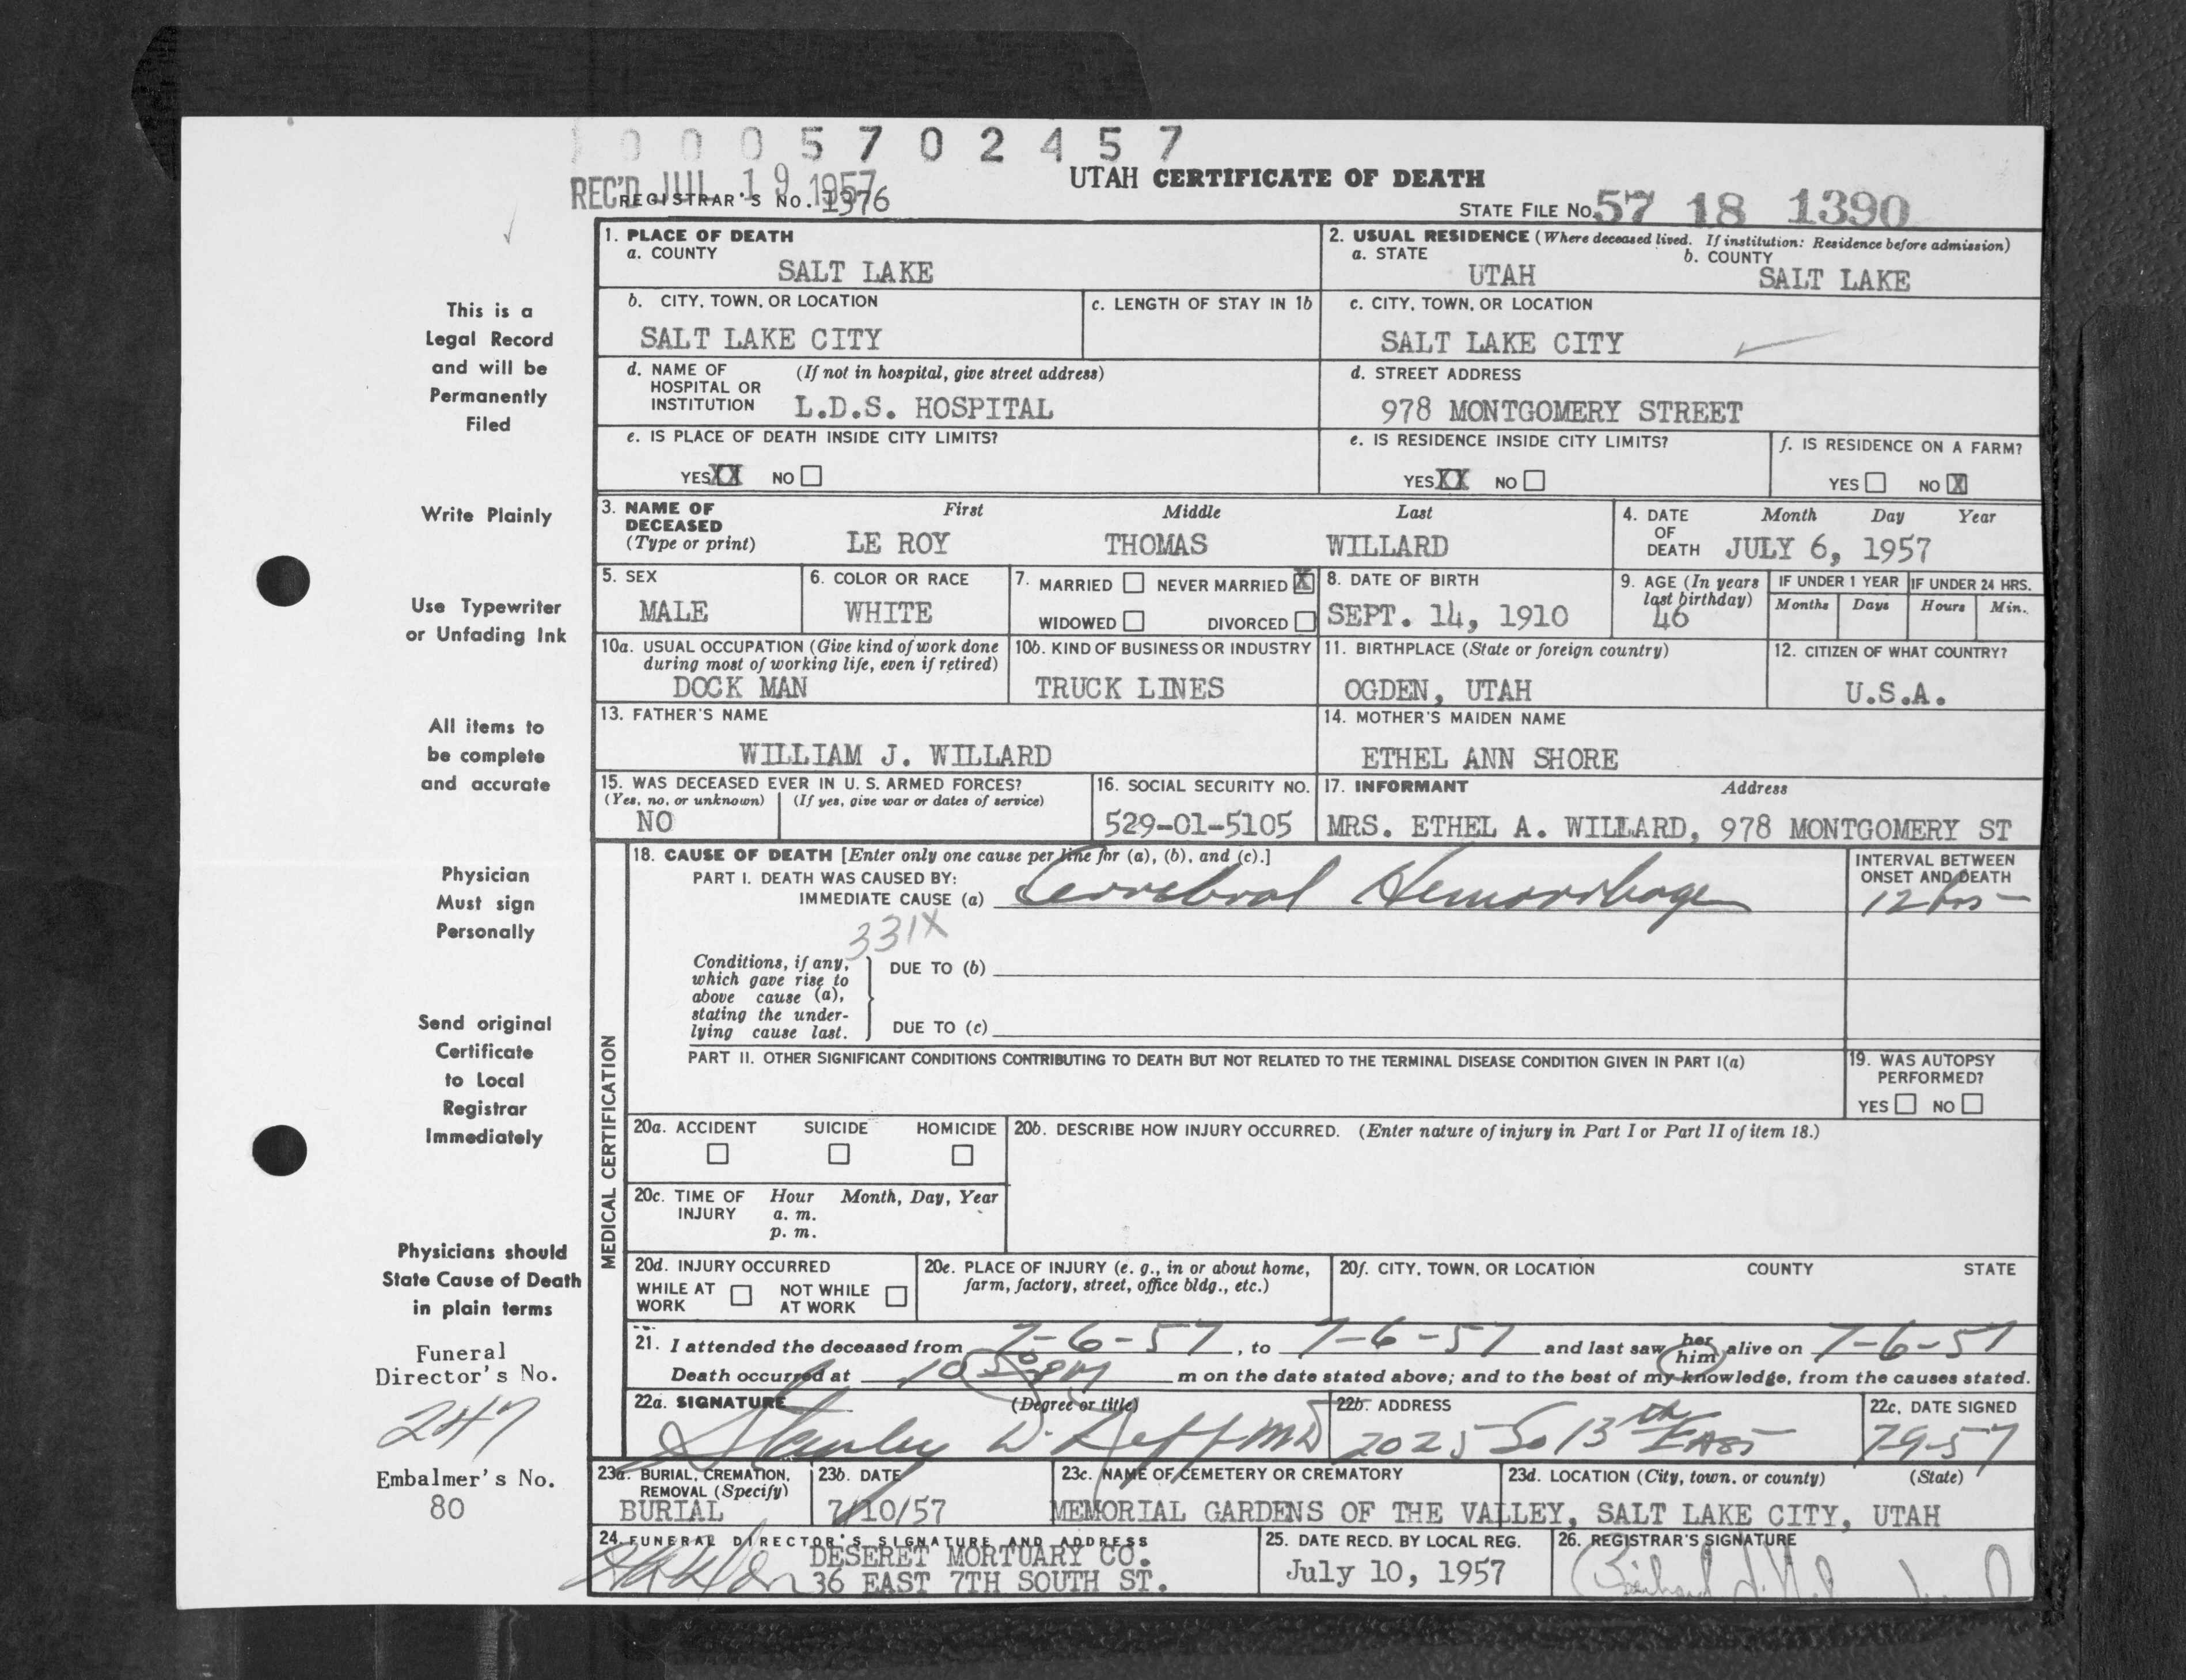 0 0 0 5 7 0 2 4 5 7
REC'D JUL 19 1957
REGISTRAR'S NO. 1376
UTAH CERTIFICATE OF DEATH
STATE FILE NO. 57 18 1390
This is a
Legal Record
and will be
Permanently
Filed
Write Plainly
Use Typewriter
or Unfading Ink
All items to
be complete
and accurate
Physician
Must sign
Personally
Send original
Certificate
to Local
Registrar
Immediately
Physicians should
State Cause of Death
in plain terms
Funeral
Director's No.
247
Embalmer's No.
80
1. PLACE OF DEATH
a. COUNTY
SALT LAKE
2. USUAL RESIDENCE (Where deceased lived. If institution: Residence before admission)
a. STATE b. COUNTY
UTAH SALT LAKE
b. CITY, TOWN, OR LOCATION
SALT LAKE CITY
c. LENGTH OF STAY IN 1b
c. CITY, TOWN, OR LOCATION
SALT LAKE CITY
d. NAME OF (If not in hospital, give street address)
HOSPITAL OR
INSTITUTION L.D.S. HOSPITAL
d. STREET ADDRESS
978 MONTGOMERY STREET
e. IS PLACE OF DEATH INSIDE CITY LIMITS?
YES XX NO
e. IS RESIDENCE INSIDE CITY LIMITS?
YES XX NO
f. IS RESIDENCE ON A FARM?
YES NO X
3. NAME OF First Middle Last
DECEASED
(Type or print) LE ROY THOMAS WILLARD
4. DATE Month Day Year
OF
DEATH JULY 6, 1957
5. SEX
MALE
6. COLOR OR RACE
WHITE
7. MARRIED NEVER MARRIED X
WIDOWED DIVORCED
8. DATE OF BIRTH
SEPT. 14, 1910
9. AGE (In years
last birthday)
46
IF UNDER 1 YEAR IF UNDER 24 HRS.
Months Days Hours Min.
10a. USUAL OCCUPATION (Give kind of work done
during most of working life, even if retired)
DOCK MAN
10b. KIND OF BUSINESS OR INDUSTRY
TRUCK LINES
11. BIRTHPLACE (State or foreign country)
OGDEN, UTAH
12. CITIZEN OF WHAT COUNTRY?
U.S.A.
13. FATHER'S NAME
WILLIAM J. WILLARD
14. MOTHER'S MAIDEN NAME
ETHEL ANN SHORE
15. WAS DECEASED EVER IN U. S. ARMED FORCES?
(Yes, no, or unknown) (If yes, give war or dates of service)
NO
16. SOCIAL SECURITY NO.
529-01-5105
17. INFORMANT Address
MRS. ETHEL A. WILLARD, 978 MONTGOMERY ST
MEDICAL CERTIFICATION
18. CAUSE OF DEATH [Enter only one cause per line for (a), (b), and (c).]
PART I. DEATH WAS CAUSED BY:
IMMEDIATE CAUSE (a) Cerrebral Hemorrhage
INTERVAL BETWEEN
ONSET AND DEATH
12 hrs -
331X
Conditions, if any,
which gave rise to
above cause (a),
stating the under-
lying cause last.
DUE TO (b)
DUE TO (c)
PART II. OTHER SIGNIFICANT CONDITIONS CONTRIBUTING TO DEATH BUT NOT RELATED TO THE TERMINAL DISEASE CONDITION GIVEN IN PART I(a)
19. WAS AUTOPSY
PERFORMED?
YES NO
20a. ACCIDENT SUICIDE HOMICIDE
20b. DESCRIBE HOW INJURY OCCURRED. (Enter nature of injury in Part I or Part II of item 18.)
20c. TIME OF Hour Month, Day, Year
INJURY a. m.
p. m.
20d. INJURY OCCURRED
WHILE AT NOT WHILE
WORK AT WORK
20e. PLACE OF INJURY (e. g., in or about home,
farm, factory, street, office bldg., etc.)
20f. CITY, TOWN, OR LOCATION COUNTY STATE
21. I attended the deceased from 7-6-57, to 7-6-57 and last saw her him alive on 7-6-57
Death occurred at 10 50 PM m on the date stated above; and to the best of my knowledge, from the causes stated.
22a. SIGNATURE (Degree or title)
Stanley W. Neff MD
22b. ADDRESS
2025 So 13th East
22c. DATE SIGNED
7-9-57
23a. BURIAL, CREMATION,
REMOVAL (Specify)
BURIAL
23b. DATE
7/10/57
23c. NAME OF CEMETERY OR CREMATORY
23d. LOCATION (City, town, or county) (State)
MEMORIAL GARDENS OF THE VALLEY, SALT LAKE CITY, UTAH
24. FUNERAL DIRECTOR'S SIGNATURE AND ADDRESS
DESERET MORTUARY CO.
36 EAST 7TH SOUTH ST.
25. DATE RECD. BY LOCAL REG.
July 10, 1957
26. REGISTRAR'S SIGNATURE